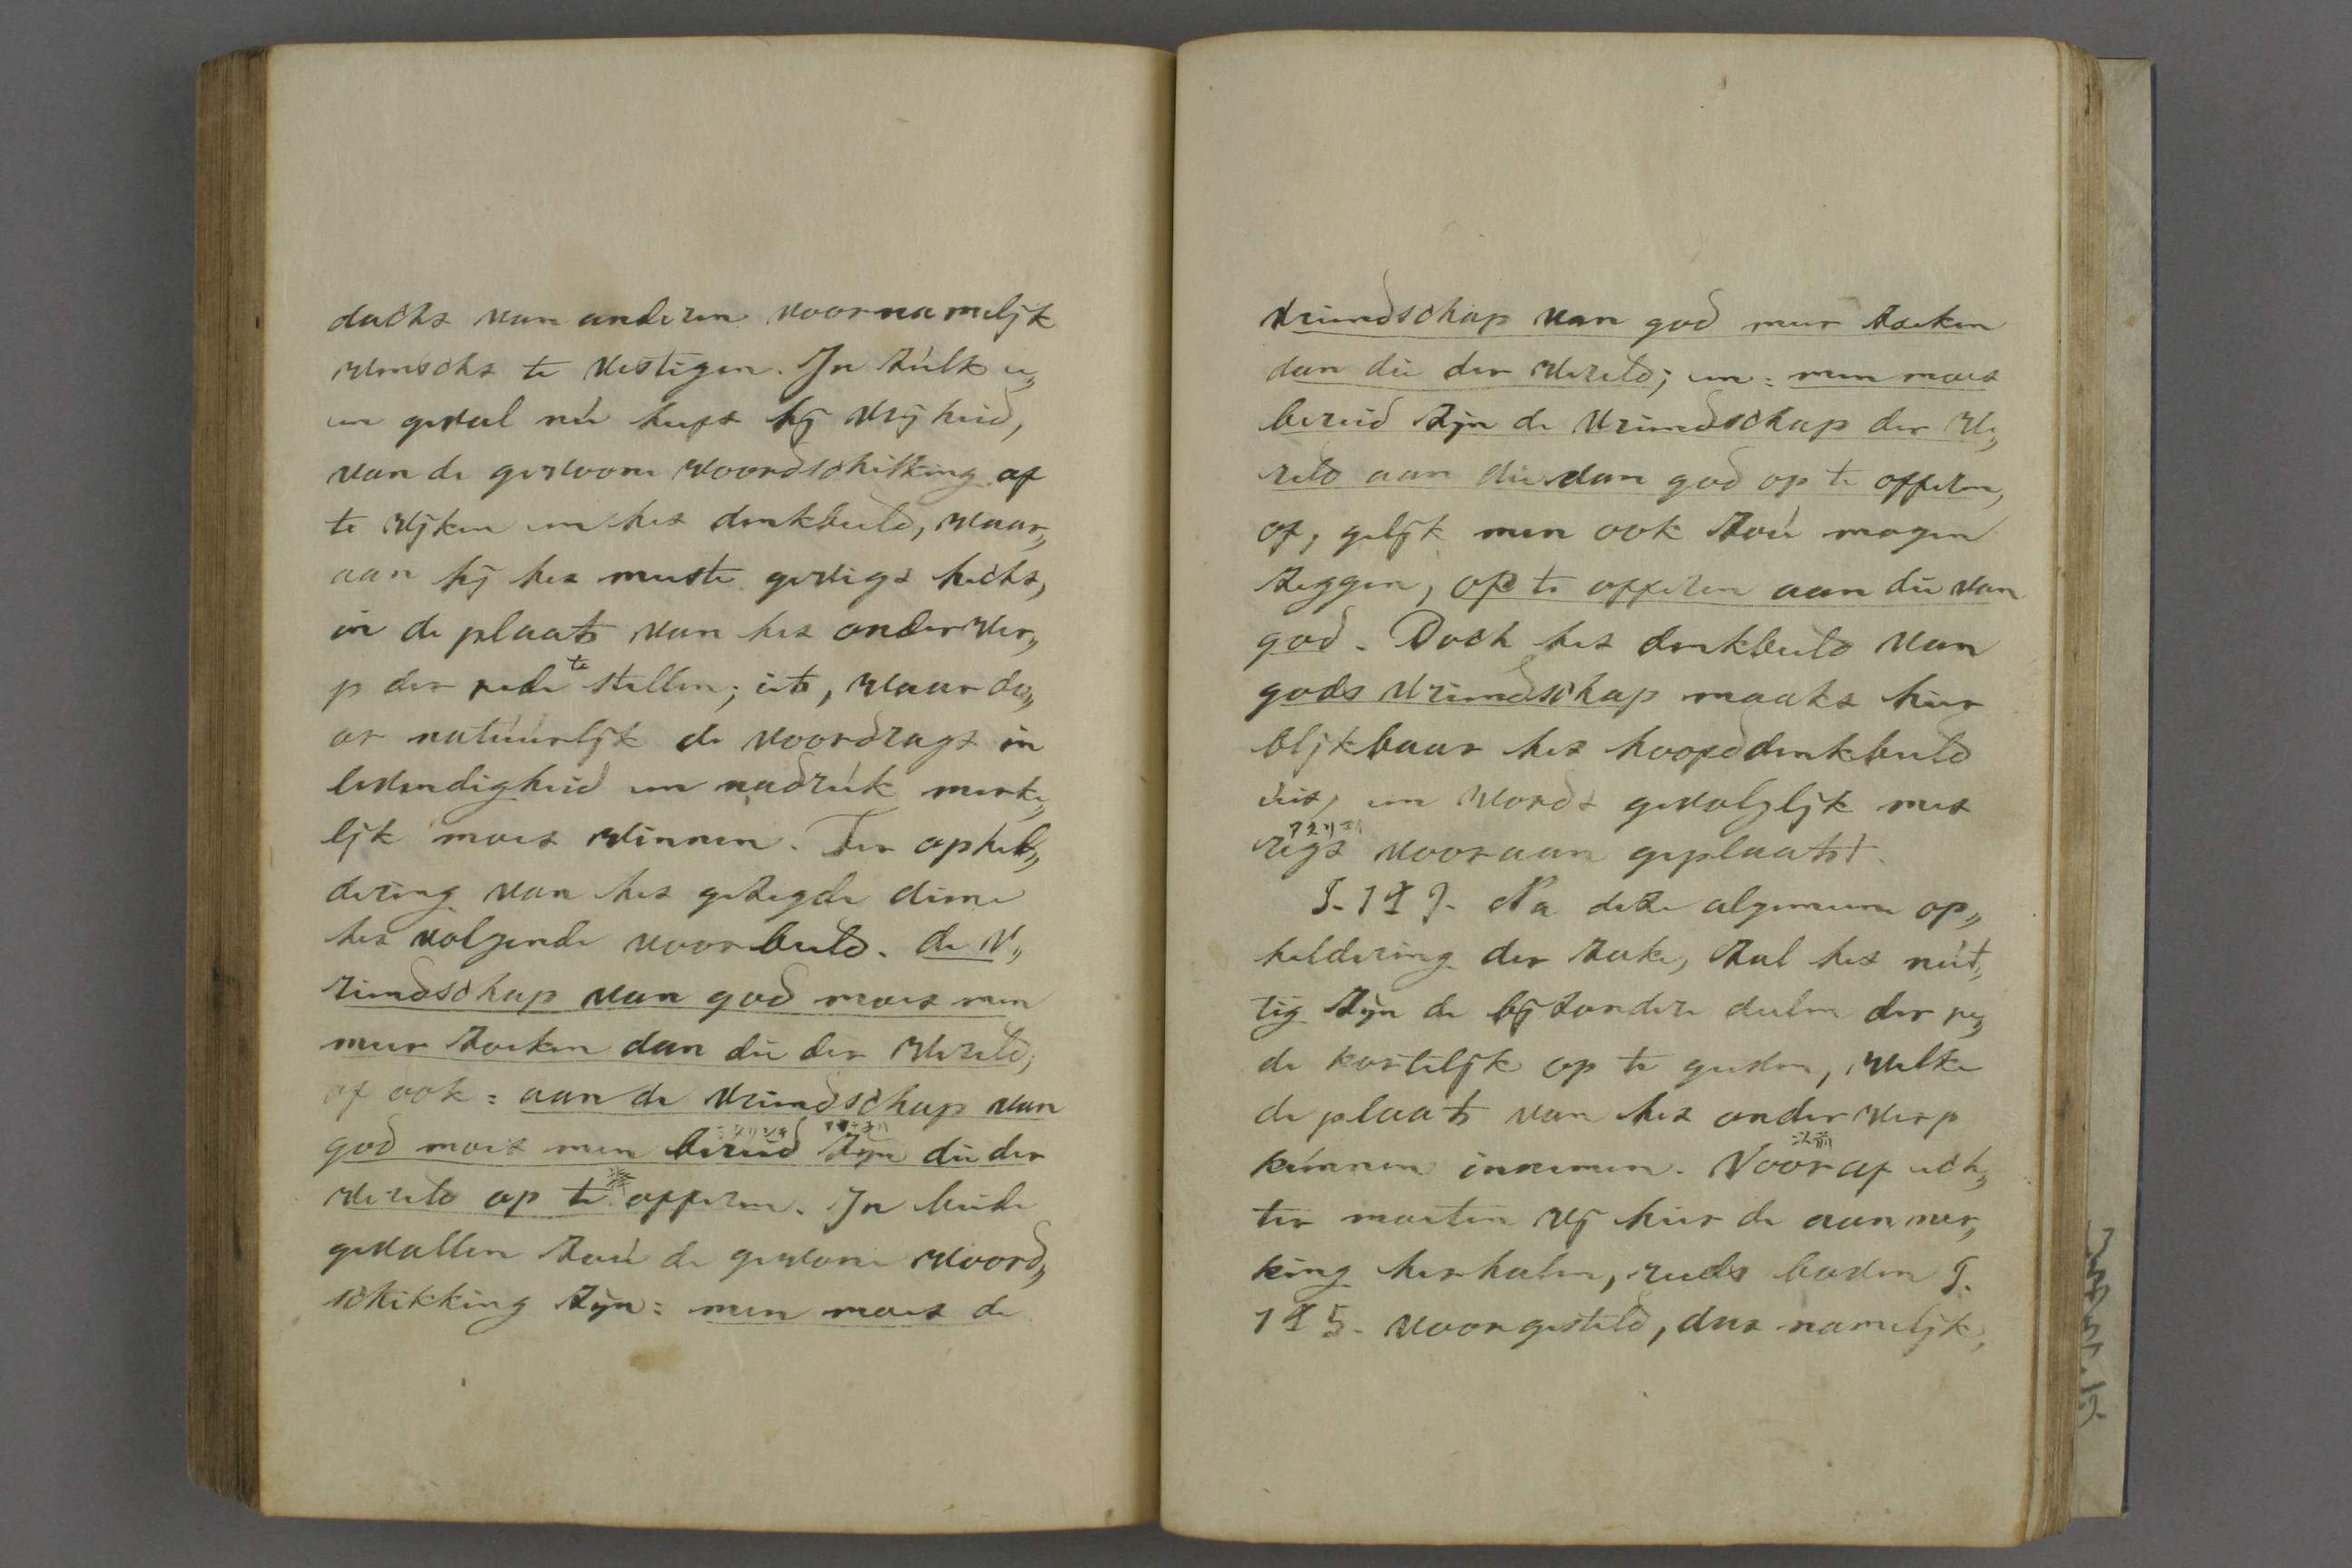 dacht van anderen voornamelijk
wenscht te vestigen. In zulk e„
en geval nú heeft hij vrijheid,
van de gewoone woordschikking af
te wijken en het denkbeeld, waar„
aan hij het meeste gewigt hecht,
in de plaats van het onderwer„
p der rede te stellen; iets, waar do„
or natúúrlijk de voordragt in
levendigheid en nadrúk merke„
lijk moet winnen. Ter ophel„
dering van het gezegde diene
het volgende voorbeeld. de v„
riendschap van god moet men
meer zoeken dan die der wereld;
of ook: aan de vriendschap van
god moet men bereid zijn die der
wereld op te offeren. In beide
gevallen zoú de gewone woord„
schikking zijn: men moet de
vriendschap van god meer zoeken
dan die der wereld; en: men moet
bereid zijn de vriendschap der we„
reld aan die van god op te offeren,
of, gelijk men ook zoú mogen
zeggen, op te offeren aan die van
god. Doch het denkbeeld van
gods vriendschap maakt hier
blijkbaar het hoofddenkbeeld
úit, en wordt gevolglijk met
regt vooraan geplaatst.
§. 119. Na deze algemeene op„
heldering der zake, zal het nút„
tig zijn de bijzondere deelen der re„
de kortelijk op te geven, welke
de plaats van het onderwerp
以前
kúnnen innemen. Vooraf ech„
ter moeten wij hier de aanmer„
king herhalen, reeds boven §.
115. voorgesteld, dat namelijk,